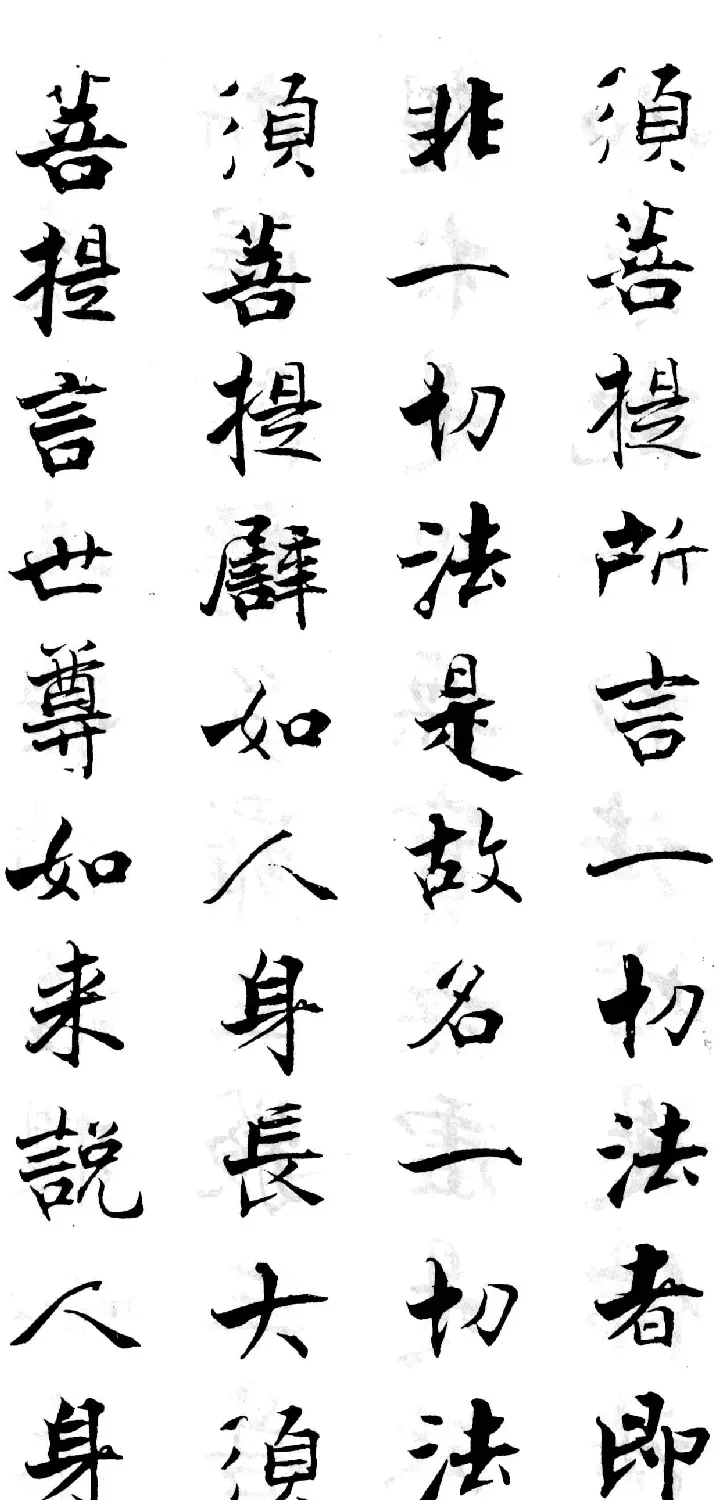 須菩提所言一切法者即
非一切法是故名一切法
須菩提譬如人身長大須
菩提言世尊如来說人身